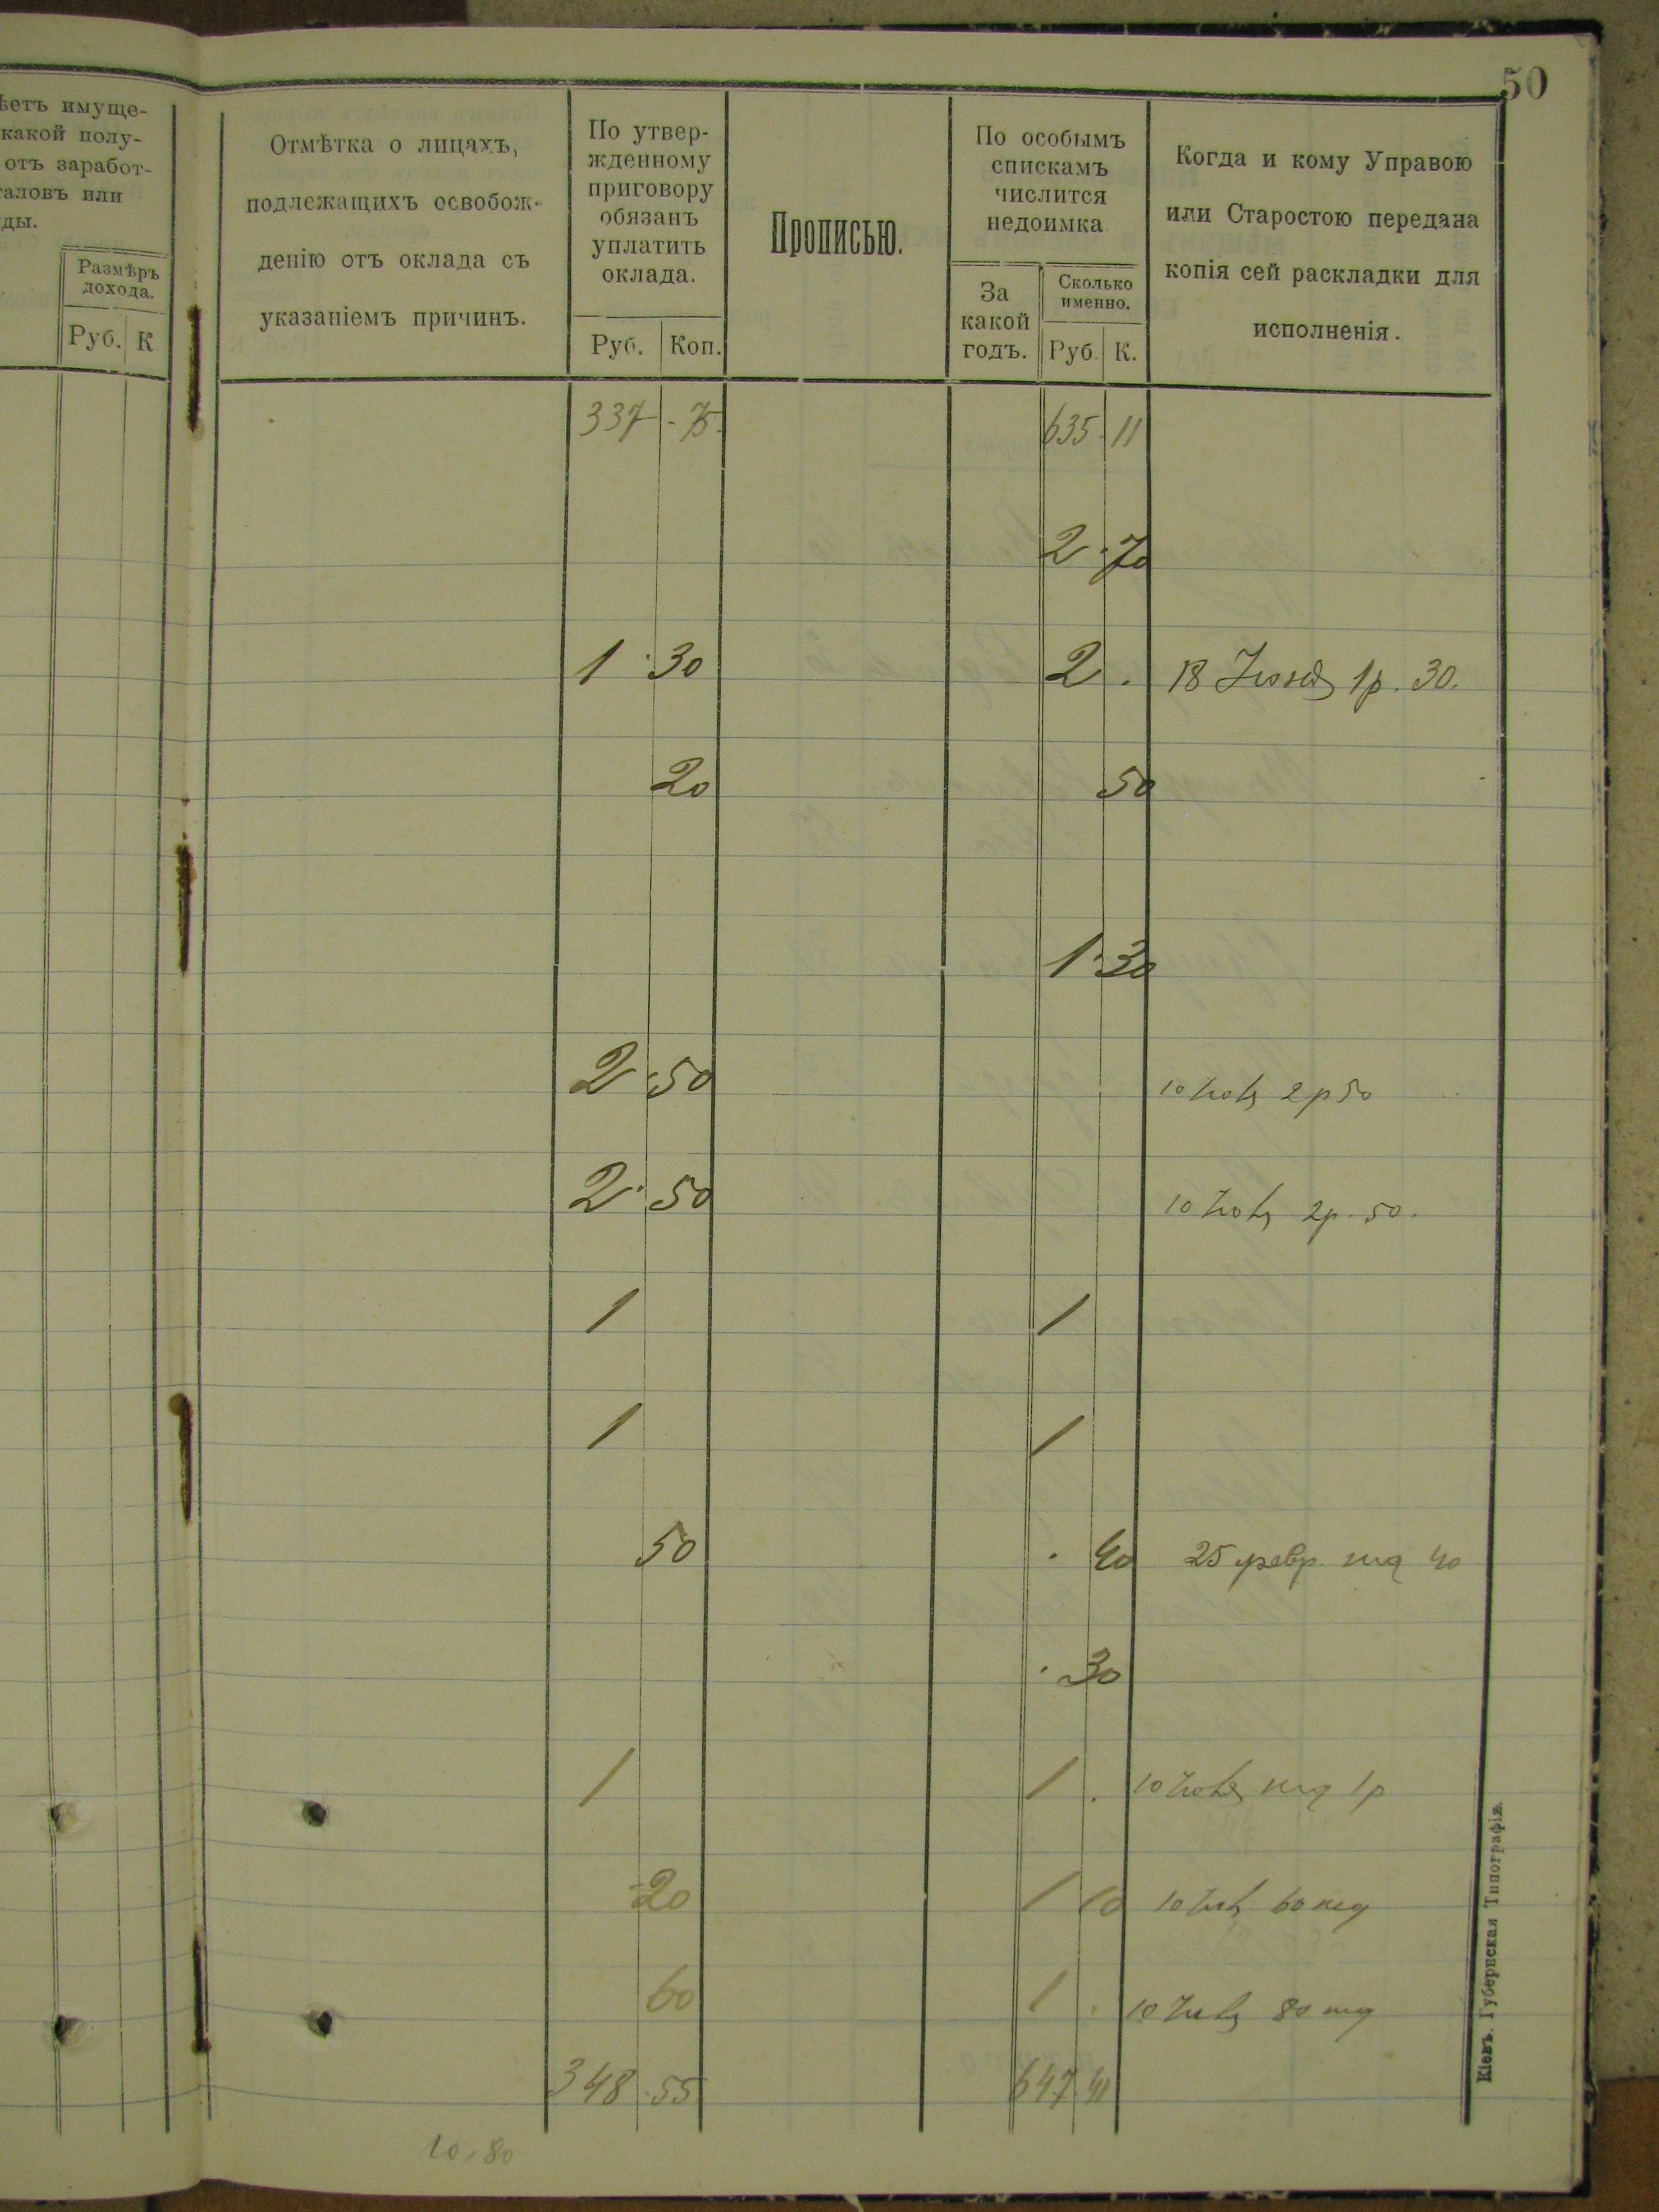 50
ѣетъ имуще-
какой полу-
отъ заработ-
таловъ или
ды.
Размѣръ
дохода.
Руб. К
Отмѣтка о лицахъ,
подлежащихъ освобож-
денію отъ оклада съ
указаніемъ причинъ.
По утвер-
жденному
приговору
обязанъ
уплатить
оклада.
Руб. Коп.
Прописью.
По особымъ
спискамъ
числится
недоимка
За
какой
годъ.
Сколько
именно.
Руб. К.
Когда и кому Управою
или Старостою передана
копія сей раскладки для
исполненія.
337 - 75. 635. 11
2 - 70
1 . 30 2 . 18 1р. 30.
20 50
1 . 30
2 . 50 10 2р 50
2 . 50 10 2р. 50.
1 1
1 1
50 . 40 25 февр. 40
. 30
1 1 . 10 1р
20 1 10 10 60
60 1 . 10 80
348 . 55. 647. 41
10.80
Кіевъ. Губернская Типографія.